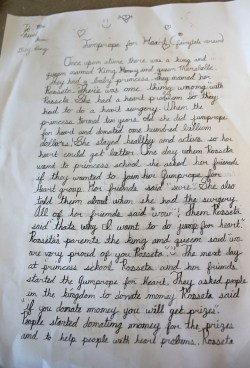 Jumprope for Heart fairytale
Once upon atime there was a king and
queen named King Henry and queen
They had a baby princess They named her
Rosseta. There was one thing wrong with
Rosseta. She had a heart problem so they
had to do a heart surgery. When the
princess turned ten years old she did jumprope
for heart and donated one hundred billion
dollars! She stayed healthy and active so her
heart could get better. One day when Rosseta
went to princess school she asked her friends
if they wanted to join her Jumprope for
Heart group. Her friends said "sure". She also
told them about when she had the surgery.
All of her friends said "wow"! Then Rosseta
said "thats why I want to do jump for heart"
Rosseta's parents the king and queen said we
are very proud of you Rosseta. The next day
at princess school Rosseta and her friends
started the Jumprope for Heart. They asked people
in the kingdom to donate money. Rosseta said
"if you donate money you will get prizes".
People started donating money for the prizes
and to help people with heart problems. Rosseta